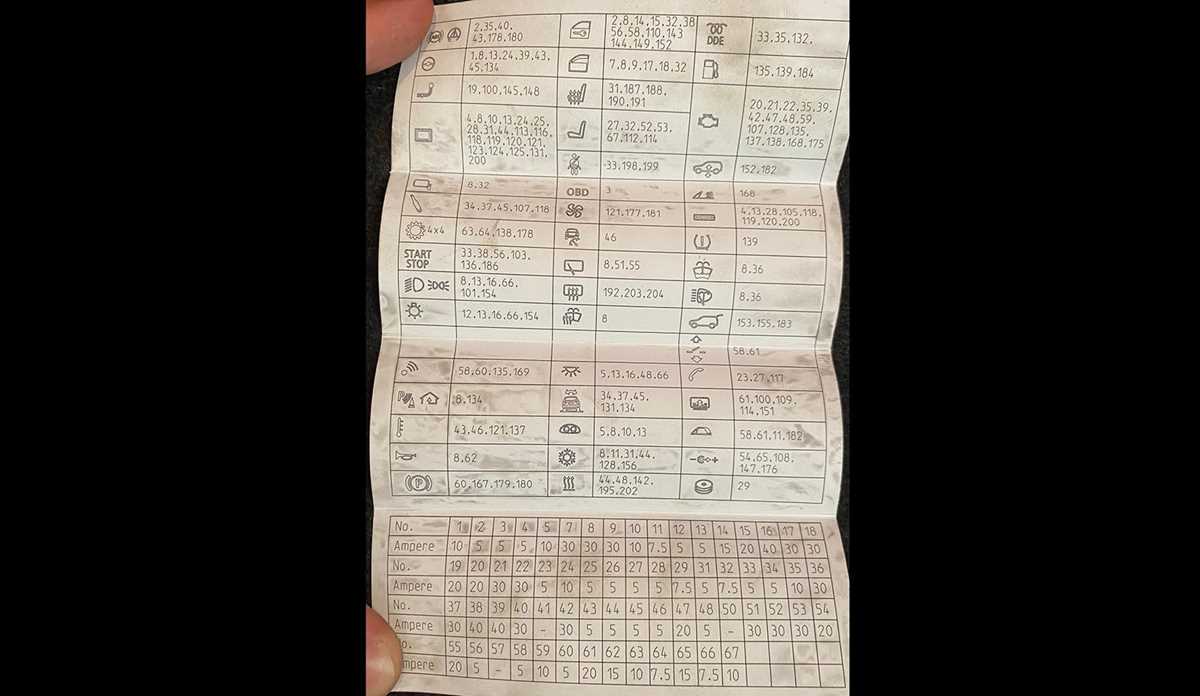 2.35.40.
43.178.180
2.8.14.15.32.38
56.58.110.143
144.149.152
DDE
33.35.132.
1.8.13.24.39.43.
45.134
7.8.9.17.18.32
135.139.184
19.100.145.148
31.187.188.
190.191
20.21.22.35.39.
42.47.48.59.
107.128.135.
137.138.168.175
4.8.10.13.24.25.
28.31.44.113.116.
118.119.120.121.
123.124.125.131.
200
27.32.52.53.
67.112.114
33.198.199
152.182
8.32
OBD
3
168
34.37.45.107.118
121.177.181
4.13.28.105.118.
119.120.200
4x4
63.64.138.178
46
139
START
STOP
33.38.56.103.
136.186
8.51.55
8.36
8.13.16.66.
101.154
192.203.204
8.36
12.13.16.66.154
8
153.155.183
58.61
58.60.135.169
5.13.16.48.66
23.27.117
8.134
34.37.45.
131.134
61.100.109.
114.151
43.46.121.137
5.8.10.13
58.61.11.182
8.62
8.11.31.44.
128.156
54.65.108.
147.176
60.167.179.180
44.48.142.
195.202
29
No. 1 2 3 4 5 7 8 9 10 11 12 13 14 15 16 17 18
Ampere 10 5 5 5 10 30 30 30 10 7.5 5 5 15 20 40 30 30
No. 19 20 21 22 23 24 25 26 27 28 29 31 32 33 34 35 36
Ampere 20 20 30 30 5 10 5 5 5 5 7.5 5 7.5 5 5 10 30
No. 37 38 39 40 41 42 43 44 45 46 47 48 50 51 52 53 54
Ampere 30 40 40 30 - 30 5 5 5 5 20 5 - 30 30 30 20
o. 55 56 57 58 59 60 61 62 63 64 65 66 67
mpere 20 5 - 5 10 5 20 15 10 7.5 15 7.5 10